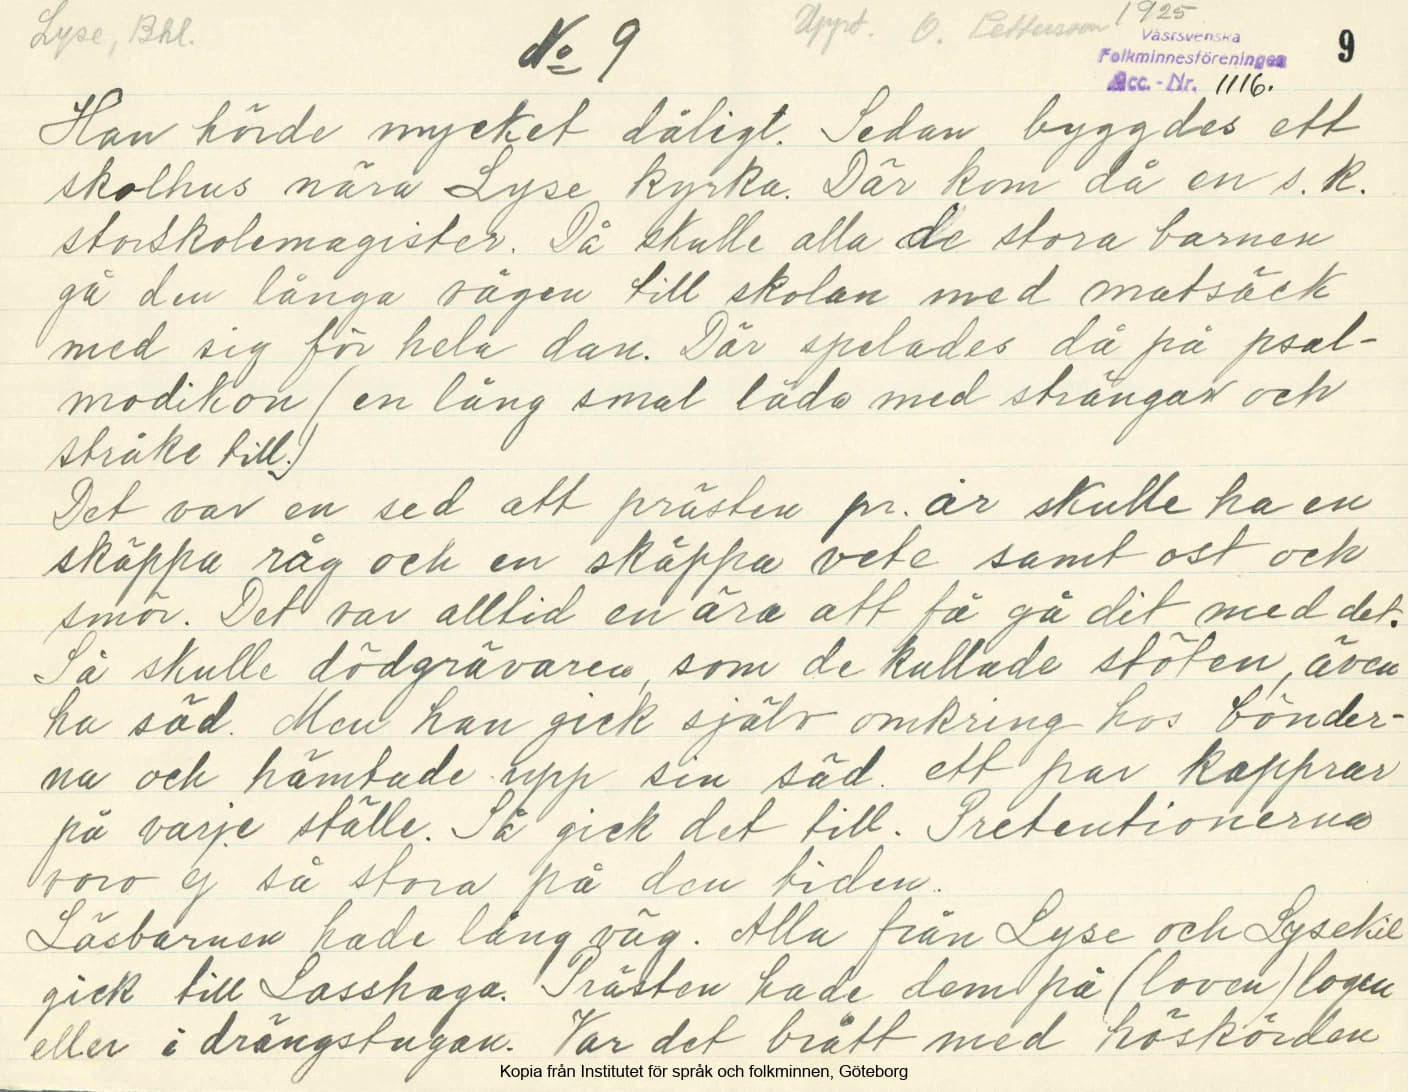 Lyse, Bhl.
No 9
Uppt. O. Pettersson 1925
Västsvenska
Folkminnesföreningen
Acc.-Nr. 1116.
9
Han hörde mycket dåligt. Sedan byggdes ett
skolhus nära Lyse kyrka. Där kom då en s.k.
storskolemagister. Då skulle alla de stora barnen
gå den långa vägen till skolan med matsäck
med sig för hela dan. Där spelades då på psal-
modikon (en lång smal låda med strängar och
stråke till.)
Det var en sed att prästen pr. år skulle ha en
skäppa råg och en skäppa vete samt ost och
smör. Det var alltid en ära att få gå dit med det.
Så skulle dödgrävaren, som de kallade stöten, även
ha säd. Men han gick själv omkring hos bönder-
na och hämtade upp sin säd. ett par kapprar
på varje ställe. Så gick det till. Pretentionerna
voro ej så stora på den tiden.
Läsbarnen hade lång väg. Alla från Lyse och Lysekil
gick till Lasshaga. Prästen hade dem på (loven) logen
eller i drängstugan. Var det brått med höskörden
Kopia från Institutet för språk och folkminnen, Göteborg